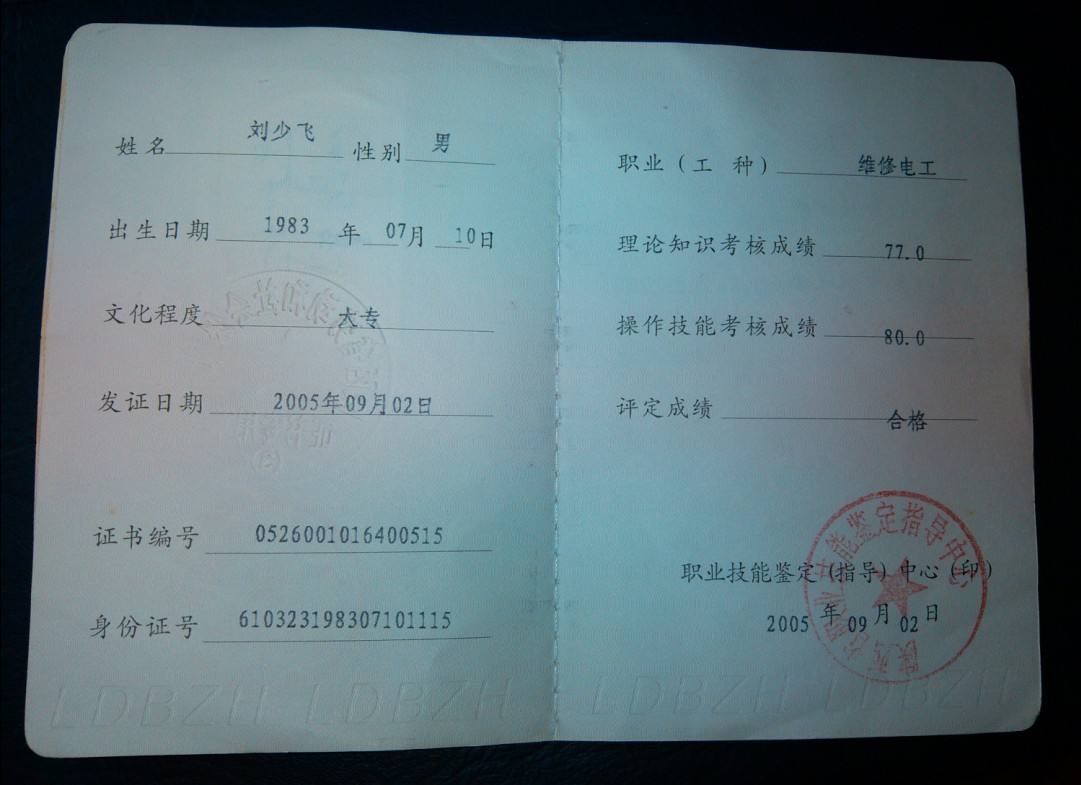 姓名 刘少飞 性别 男
出生日期 1983 年 07月 10日
文化程度 大专
发证日期 2005年09月02日
证书编号 0526001016400515
身份证号 610323198307101115
LDBZH LDBZH
职业（工 种） 维修电工
理论知识考核成绩 77.0
操作技能考核成绩 80.0
评定成绩 合格
陕西省职业技能鉴定指导中心
职业技能鉴定（指导）中心（印）
2005 年 09 月 02 日
LDBZH LDBZH